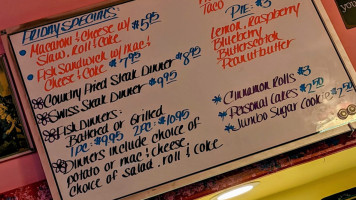 Friday Specials:
Macaroni & Cheese w/ $5.95
Slaw, Roll & Cake
Fish Sandwich w/ mac &
Cheese & Cake $7.95
Country Fried Steak Dinner $8.95
Swiss Steak Dinner $9.95
Fish Dinners:
Battered or Grilled
1pc: $9.95 2pc: $10.95
Dinners include choice of
potato or mac & cheese
choice of salad, roll & cake
Taco
Pie: $3
Lemon, Raspberry
Blueberry
Butterscotch
Peanutbutter
Cinnamon Rolls $3
Personal Cakes $2.50
Jumbo Sugar Cook